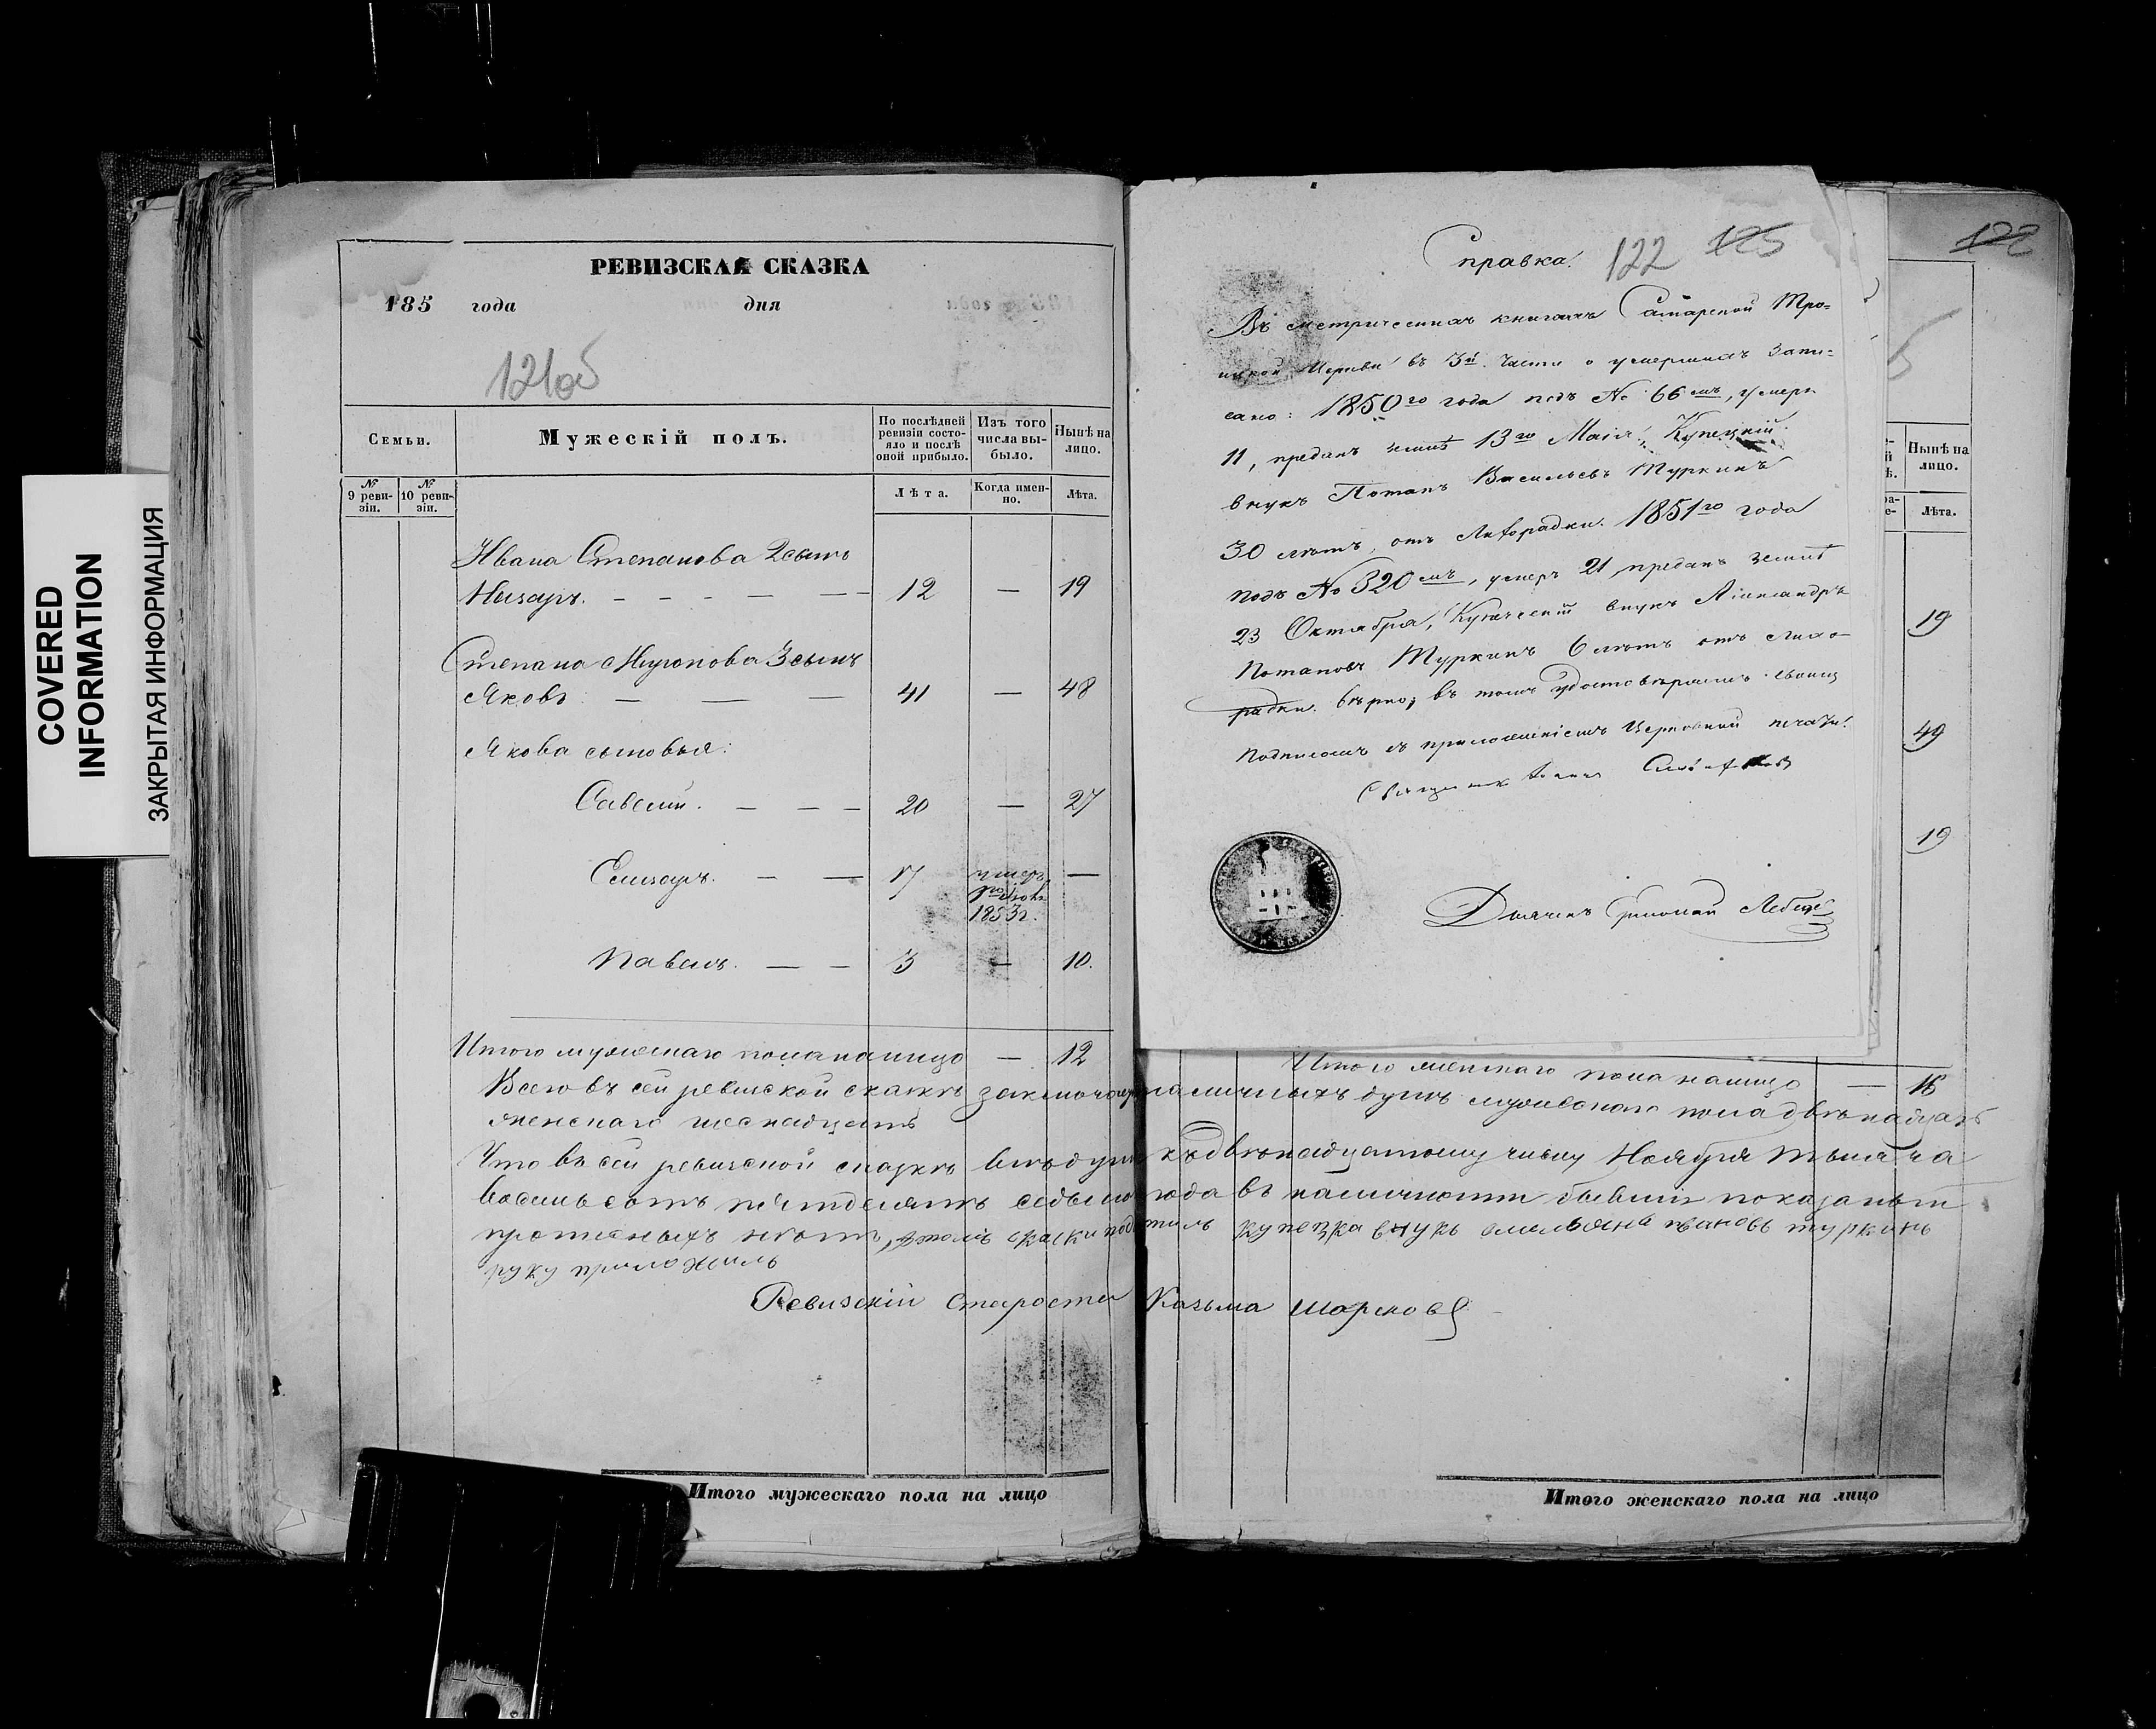 COVERED
INFORMATION
ЗАКРЫТАЯ ИНФОРМАЦИЯ
РЕВИЗСКАЯ СКАЗКА
185 года дня
121об
Семьи.
Мужескій полъ.
По послѣдней ревизіи состояло и послѣ оной прибыло.
Изъ того числа выбыло.
Нынѣ на лицо.
№ 9 ревизіи.
№ 10 ревизіи.
Лѣта.
Когда именно.
Лѣта.
Ивана Степанова 2 сынъ
Назаръ. 12 — 19
Степана Миронова 3 сынъ
Яковъ 41 — 48
Якова сыновья:
Савелій. 20 — 27
Елизаръ. 17 умеръ 1853 г. —
Павелъ. 3 — 10.
Итого мужескаго пола налицо — 12
Справка. 122 125
Въ метрическихъ книгахъ Самарской Тро=
ицкой Церкви въ 3й части о умершихъ запи=
сано: 1850го года подъ № 66мъ, умеръ
11, преданъ землѣ 13го Маія, Купецкій
внукъ Потапъ Васильевъ Туркинъ
30 лѣтъ, отъ лихорадки. 1851го года
подъ № 320мъ, умеръ 21, преданъ землѣ
23 Октября, Купеческій внукъ Александръ
Потаповъ Туркинъ 6 лѣтъ отъ лихо-
радки. вѣрно; въ томъ удостовѣряемъ своимъ
подписомъ съ приложеніемъ Церковной печати.
Священник
122
Нынѣ на лицо.
Лѣта.
19
49
19
Итого женскаго пола налицо — 16
Всего въ сей ревизской сказкѣ наличныхъ душъ мужескаго пола двѣнадцать
женскаго шеснадцать
Что въ сей ревизской сказкѣ всѣ души къ двѣнадцатому числу Ноября тысяча
восемьсотъ пятдесятъ седьмого года въ наличности бывшіе показаны и
прописныхъ нѣтъ, купецка внукъ емельянъ ивановъ туркинъ
руку приложилъ
Ревизскій Староста Казьма
Итого мужескаго пола на лицо
Итого женскаго пола на лицо